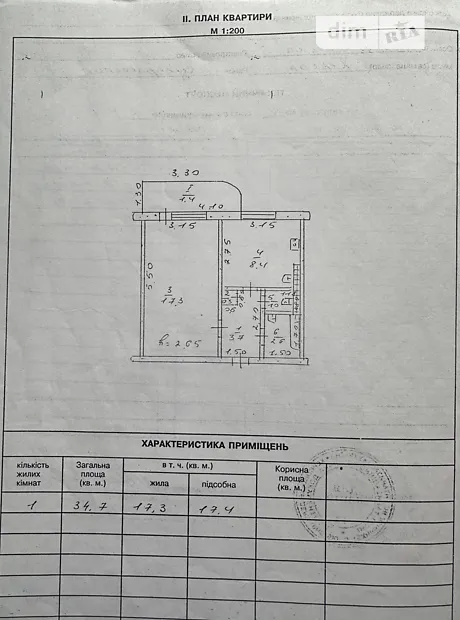 II. ПЛАН КВАРТИРИ
М 1:200
dim RIA
3,30
1.30
I
1.4
4.10
3,15
3.15
2.75
4
8.4
5.50
3
17,3
2.70
1
3.7
5
1.0
6
2.6
h=2.65
1.50
1.50
ХАРАКТЕРИСТИКА ПРИМІЩЕНЬ
кількість жилих кімнат
Загальна площа (кв. м.)
в т. ч. (кв. м.)
жила
підсобна
Корисна площа (кв. м.)
1 34,7 17,3 17.4